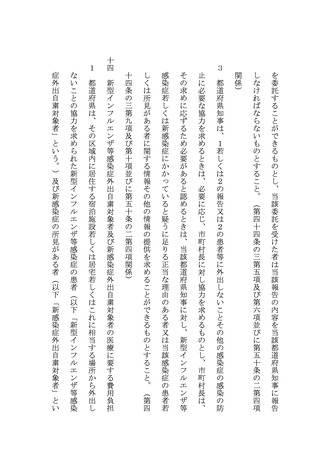 を委託することができるものとし、当該委託を受けた者は当該報告の内容を当該都道府県知事に報告
しなければならないものとすること。（第四十四条の三第五項及び第六項並びに第五十条の二第四項
関係）
３　都道府県知事は、１若しくは２の報告又は２の患者等に外出しないことその他の感染症の感染の防
止に必要な協力を求めるときは、必要に応じ、市町村長に対し協力を求めるものとし、市町村長は、
その求めに応ずるため必要があると認めるときは、当該都道府県知事に対し、新型インフルエンザ等
感染症若しくは新感染症にかかっていると疑うに足りる正当な理由のある者又は当該感染症の患者若
しくは所見がある者に関する情報その他の情報の提供を求めることができるものとすること。（第四
十四条の三第九項及び第十項並びに第五十条の二第四項関係）
十四　新型インフルエンザ等感染症外出自粛対象者及び新感染症外出自粛対象者の医療に要する費用負担
１　都道府県は、その区域内に居住する宿泊施設若しくは居宅若しくはこれに相当する場所から外出し
ないことの協力を求められた新型インフルエンザ等感染症の患者（以下「新型インフルエンザ等感染
症外出自粛対象者」という。）及び新感染症の所見がある者（以下「新感染症外出自粛対象者」とい